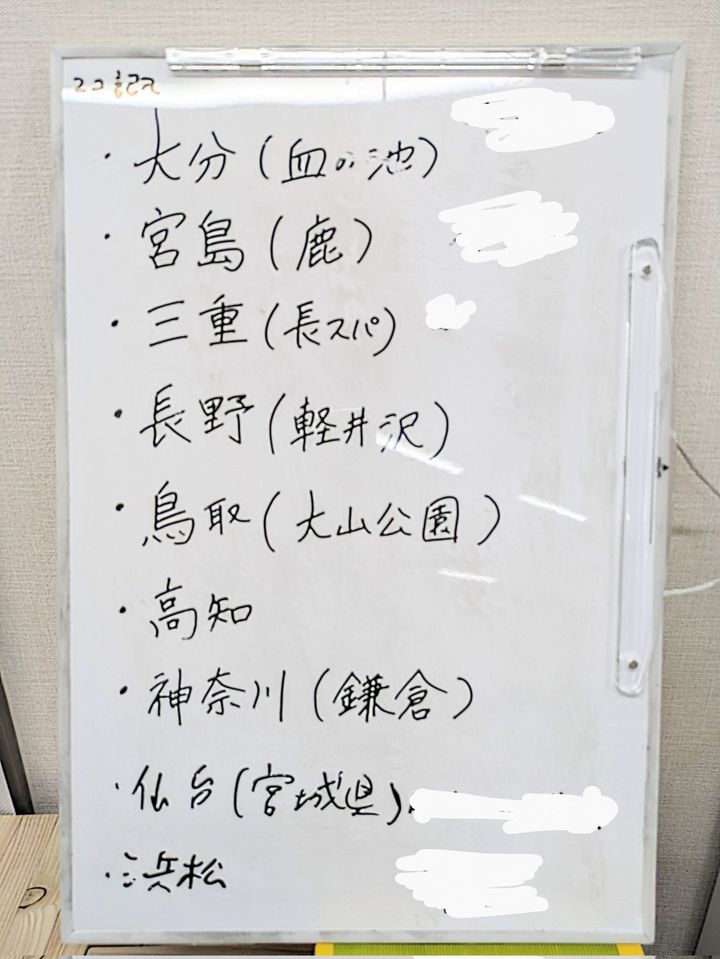 ・大分(血の池)
・宮島(鹿)
・三重(長スパ)
・長野(軽井沢)
・鳥取(大山公園)
・高知
・神奈川(鎌倉)
・仙台(宮城県)
・浜松